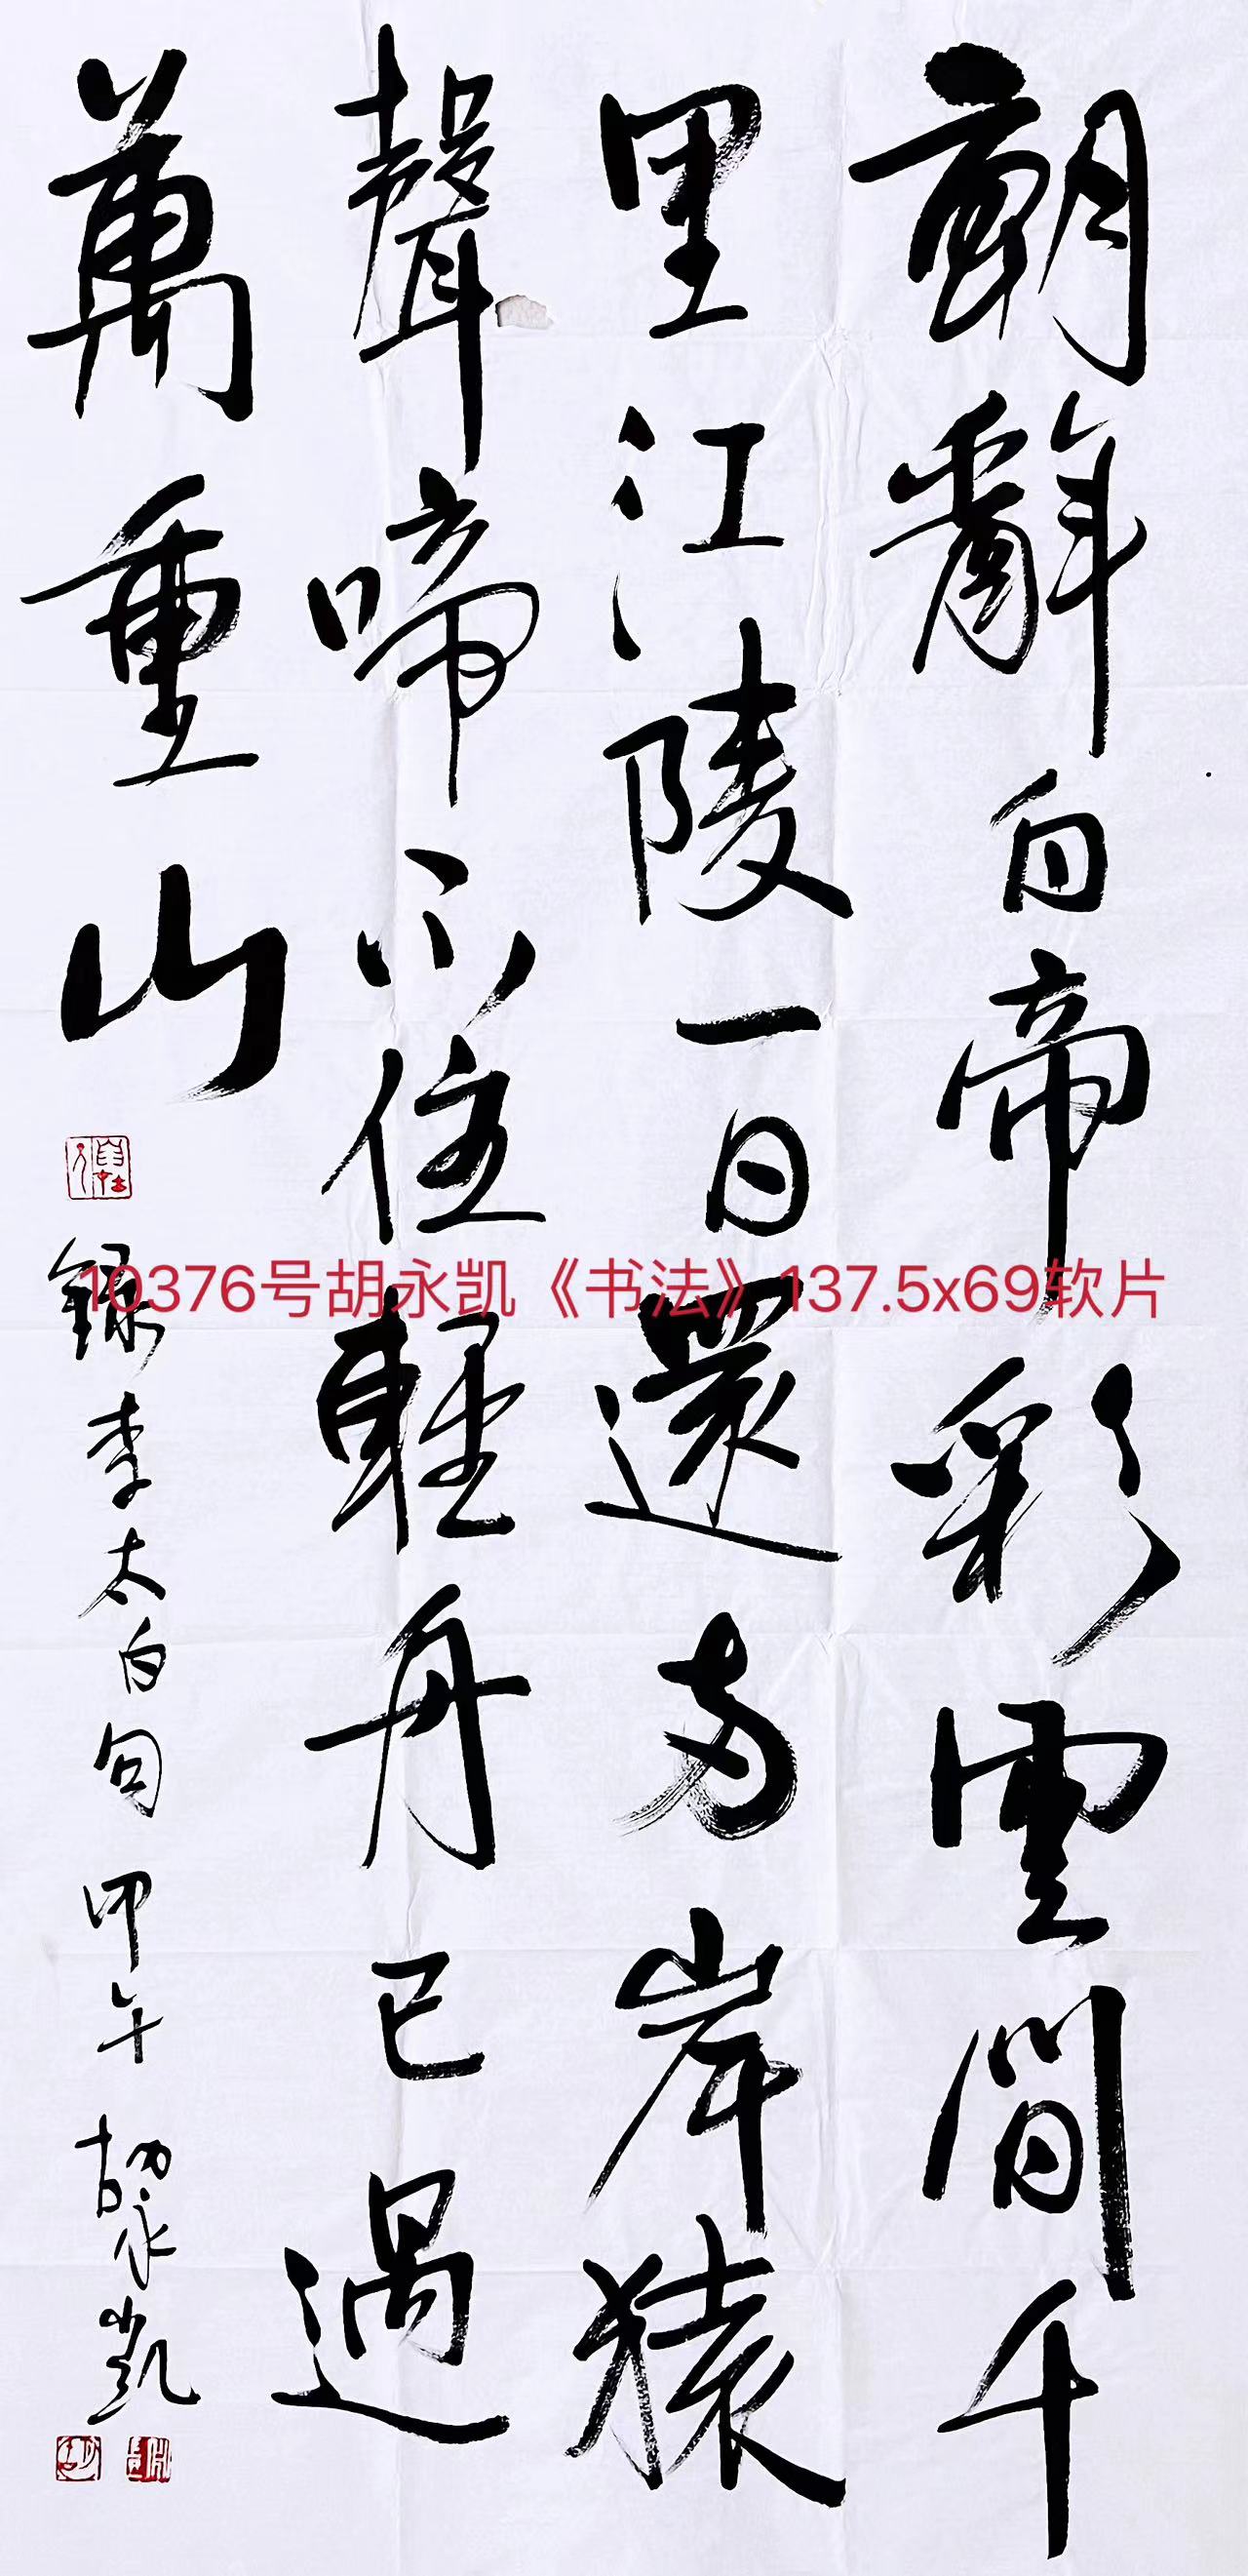 朝辭白帝彩雲間千
里江陵一日還两岸猿
聲啼不住輕舟已過
萬重山
錄李太白句 甲午 胡永凯
10376号胡永凯《书法》137.5x69软片